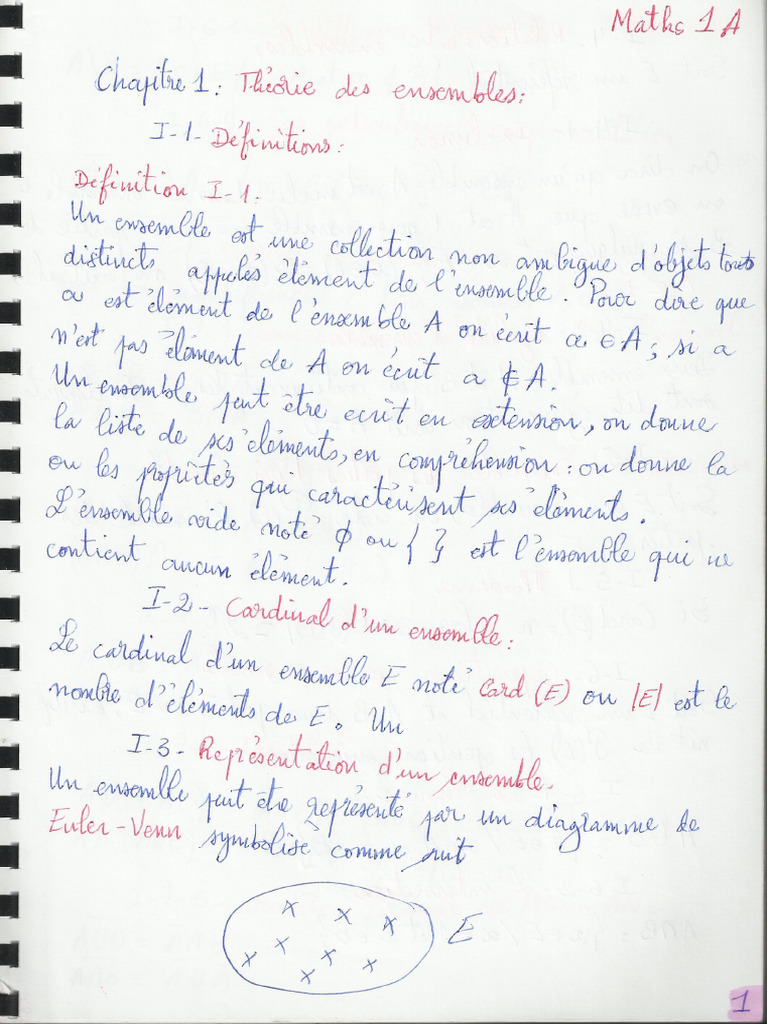 Maths 1A
Chapitre 1: Théorie des ensembles:
I-1- Définitions:
Définition I-1:
Un ensemble est une collection non ambigue d'objets touts
distincts appelés élément de l'ensemble. Pour dire que
a est élément de l'ensemble A on écrit a ∈ A; si a
n'est pas élément de A on écrit a ∉ A.
Un ensemble peut être ecrit en extension, on donne
la liste de ses éléments, en compréhension: on donne la
ou les propriétés qui caractérisent ses éléments.
L'ensemble vide noté ϕ ou { } est l'ensemble qui ne
contient aucun élément.
I-2- Cardinal d'un ensemble:
Le cardinal d'un ensemble E noté Card (E) ou |E| est le
nombre d'éléments de E. Un
I-3- Représentation d'un ensemble.
Un ensemble peut être représenté par un diagramme de
Euler-Venn symbolisé comme suit
E
1